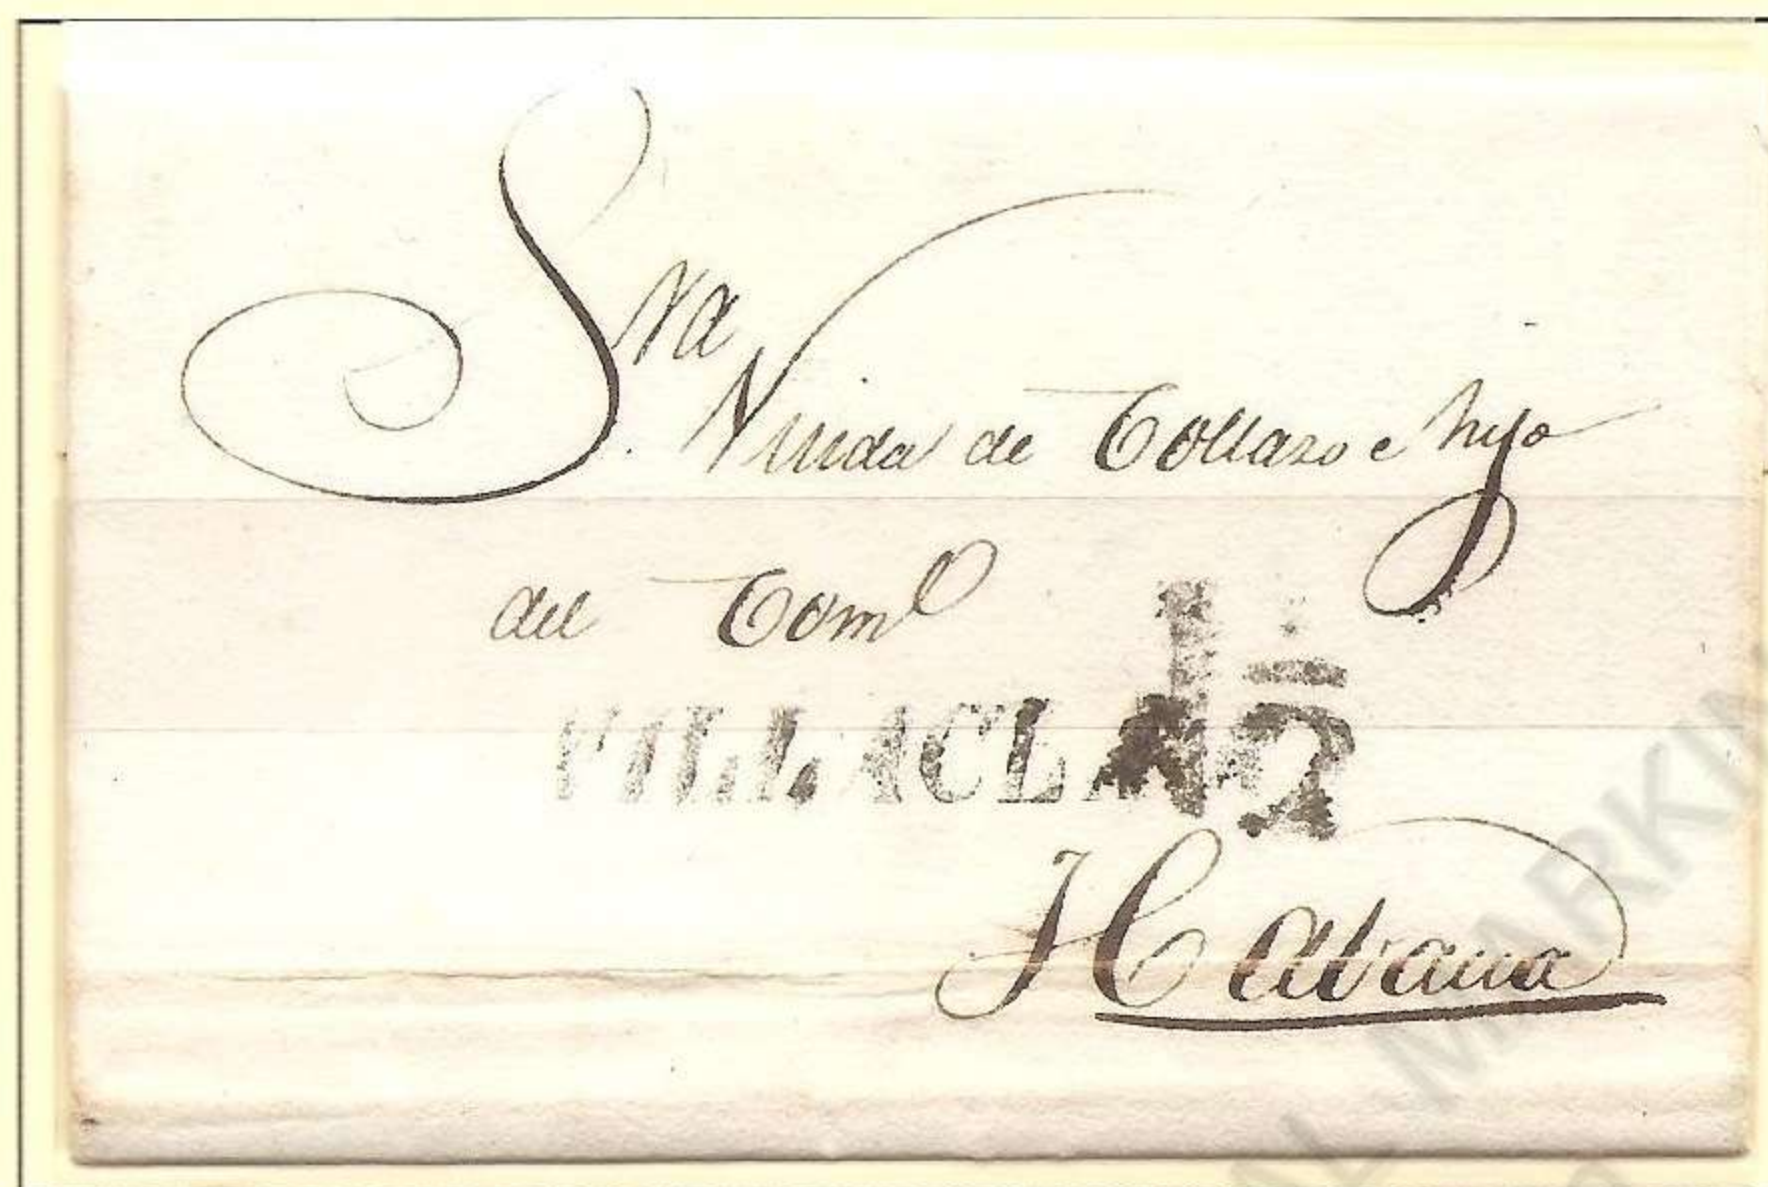 Sra
Viuda de Collazo e hijo
del Com.º
VILLACLARA
1½
Habana
AL MARKIN